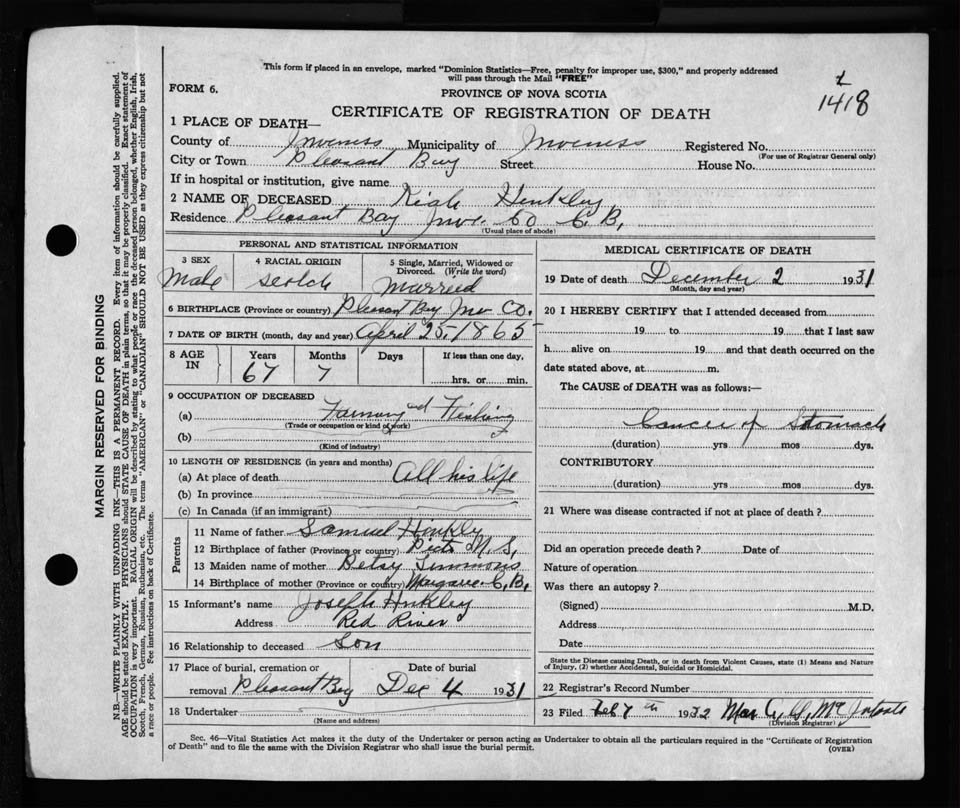 This form if placed in an envelope, marked "Dominion Statistics—Free, penalty for improper use, $300," and properly addressed
will pass through the Mail "FREE"
FORM 6.
PROVINCE OF NOVA SCOTIA
1418
CERTIFICATE OF REGISTRATION OF DEATH
1 PLACE OF DEATH—
County of Inverness Municipality of Inverness Registered No.
(For use of Registrar General only)
City or Town Pleasant Bay Street House No.
If in hospital or institution, give name
2 NAME OF DECEASED Hinkley
Residence Pleasant Bay Inve Co C.B.
(Usual place of abode)
PERSONAL AND STATISTICAL INFORMATION
3 SEX
Male
4 RACIAL ORIGIN
scotch
5 Single, Married, Widowed or
Divorced. (Write the word)
Married
6 BIRTHPLACE (Province or country) Pleasant Bay Inv Co.
7 DATE OF BIRTH (month, day and year) April 25, 1865
8 AGE
IN
Years
67
Months
7
Days
If less than one day,
hrs. or min.
9 OCCUPATION OF DECEASED
(a) Farming and Fishing
(Trade or occupation or kind of work)
(b)
(Kind of industry)
10 LENGTH OF RESIDENCE (in years and months)
(a) At place of death All his life
(b) In province
(c) In Canada (if an immigrant)
Parents
11 Name of father Samuel Hinkly
12 Birthplace of father (Province or country) N.S.
13 Maiden name of mother Betsy Simmons
14 Birthplace of mother (Province or country) Margaree C.B.
15 Informant's name Joseph Hinkley
Address Red River
16 Relationship to deceased Son
17 Place of burial, cremation or
Date of burial
removal Pleasant Bay Dec 4 1931
18 Undertaker
(Name and address)
MEDICAL CERTIFICATE OF DEATH
19 Date of death December 2 1931
(Month, day and year)
20 I HEREBY CERTIFY that I attended deceased from
19 to 19 that I last saw
h alive on 19 and that death occurred on the
date stated above, at m.
The CAUSE of DEATH was as follows:—
Cancer of Stomach
(duration) yrs mos dys.
CONTRIBUTORY
(duration) yrs mos dys.
21 Where was disease contracted if not at place of death?
Did an operation precede death? Date of
Nature of operation
Was there an autopsy?
(Signed) M.D.
Address
Date
State the Disease causing Death, or in death from Violent Causes, state (1) Means and Nature
of Injury, (2) whether Accidental, Suicidal or Homicidal.
22 Registrar's Record Number
23 Filed Feb 7th 1932
(Division Registrar)
Sec. 46—Vital Statistics Act makes it the duty of the Undertaker or person acting as Undertaker to obtain all the particulars required in the "Certificate of Registration
of Death" and to file the same with the Division Registrar who shall issue the burial permit.
(OVER)
MARGIN RESERVED FOR BINDING
N.B.—WRITE PLAINLY WITH UNFADING INK—THIS IS A PERMANENT RECORD. Every item of information should be carefully supplied.
AGE should be stated EXACTLY. PHYSICIANS should STATE CAUSE OF DEATH in plain terms, so that it may be properly classified. Exact statement of
OCCUPATION is very important. RACIAL ORIGIN will be described by stating to what people or race the deceased person belonged, whether English, Irish,
Scotch, French, German, Russian, Ruthenian, etc. The terms "AMERICAN" or "CANADIAN" SHOULD NOT BE USED as they express citizenship but not
a race or people. See instructions on back of Certificate.